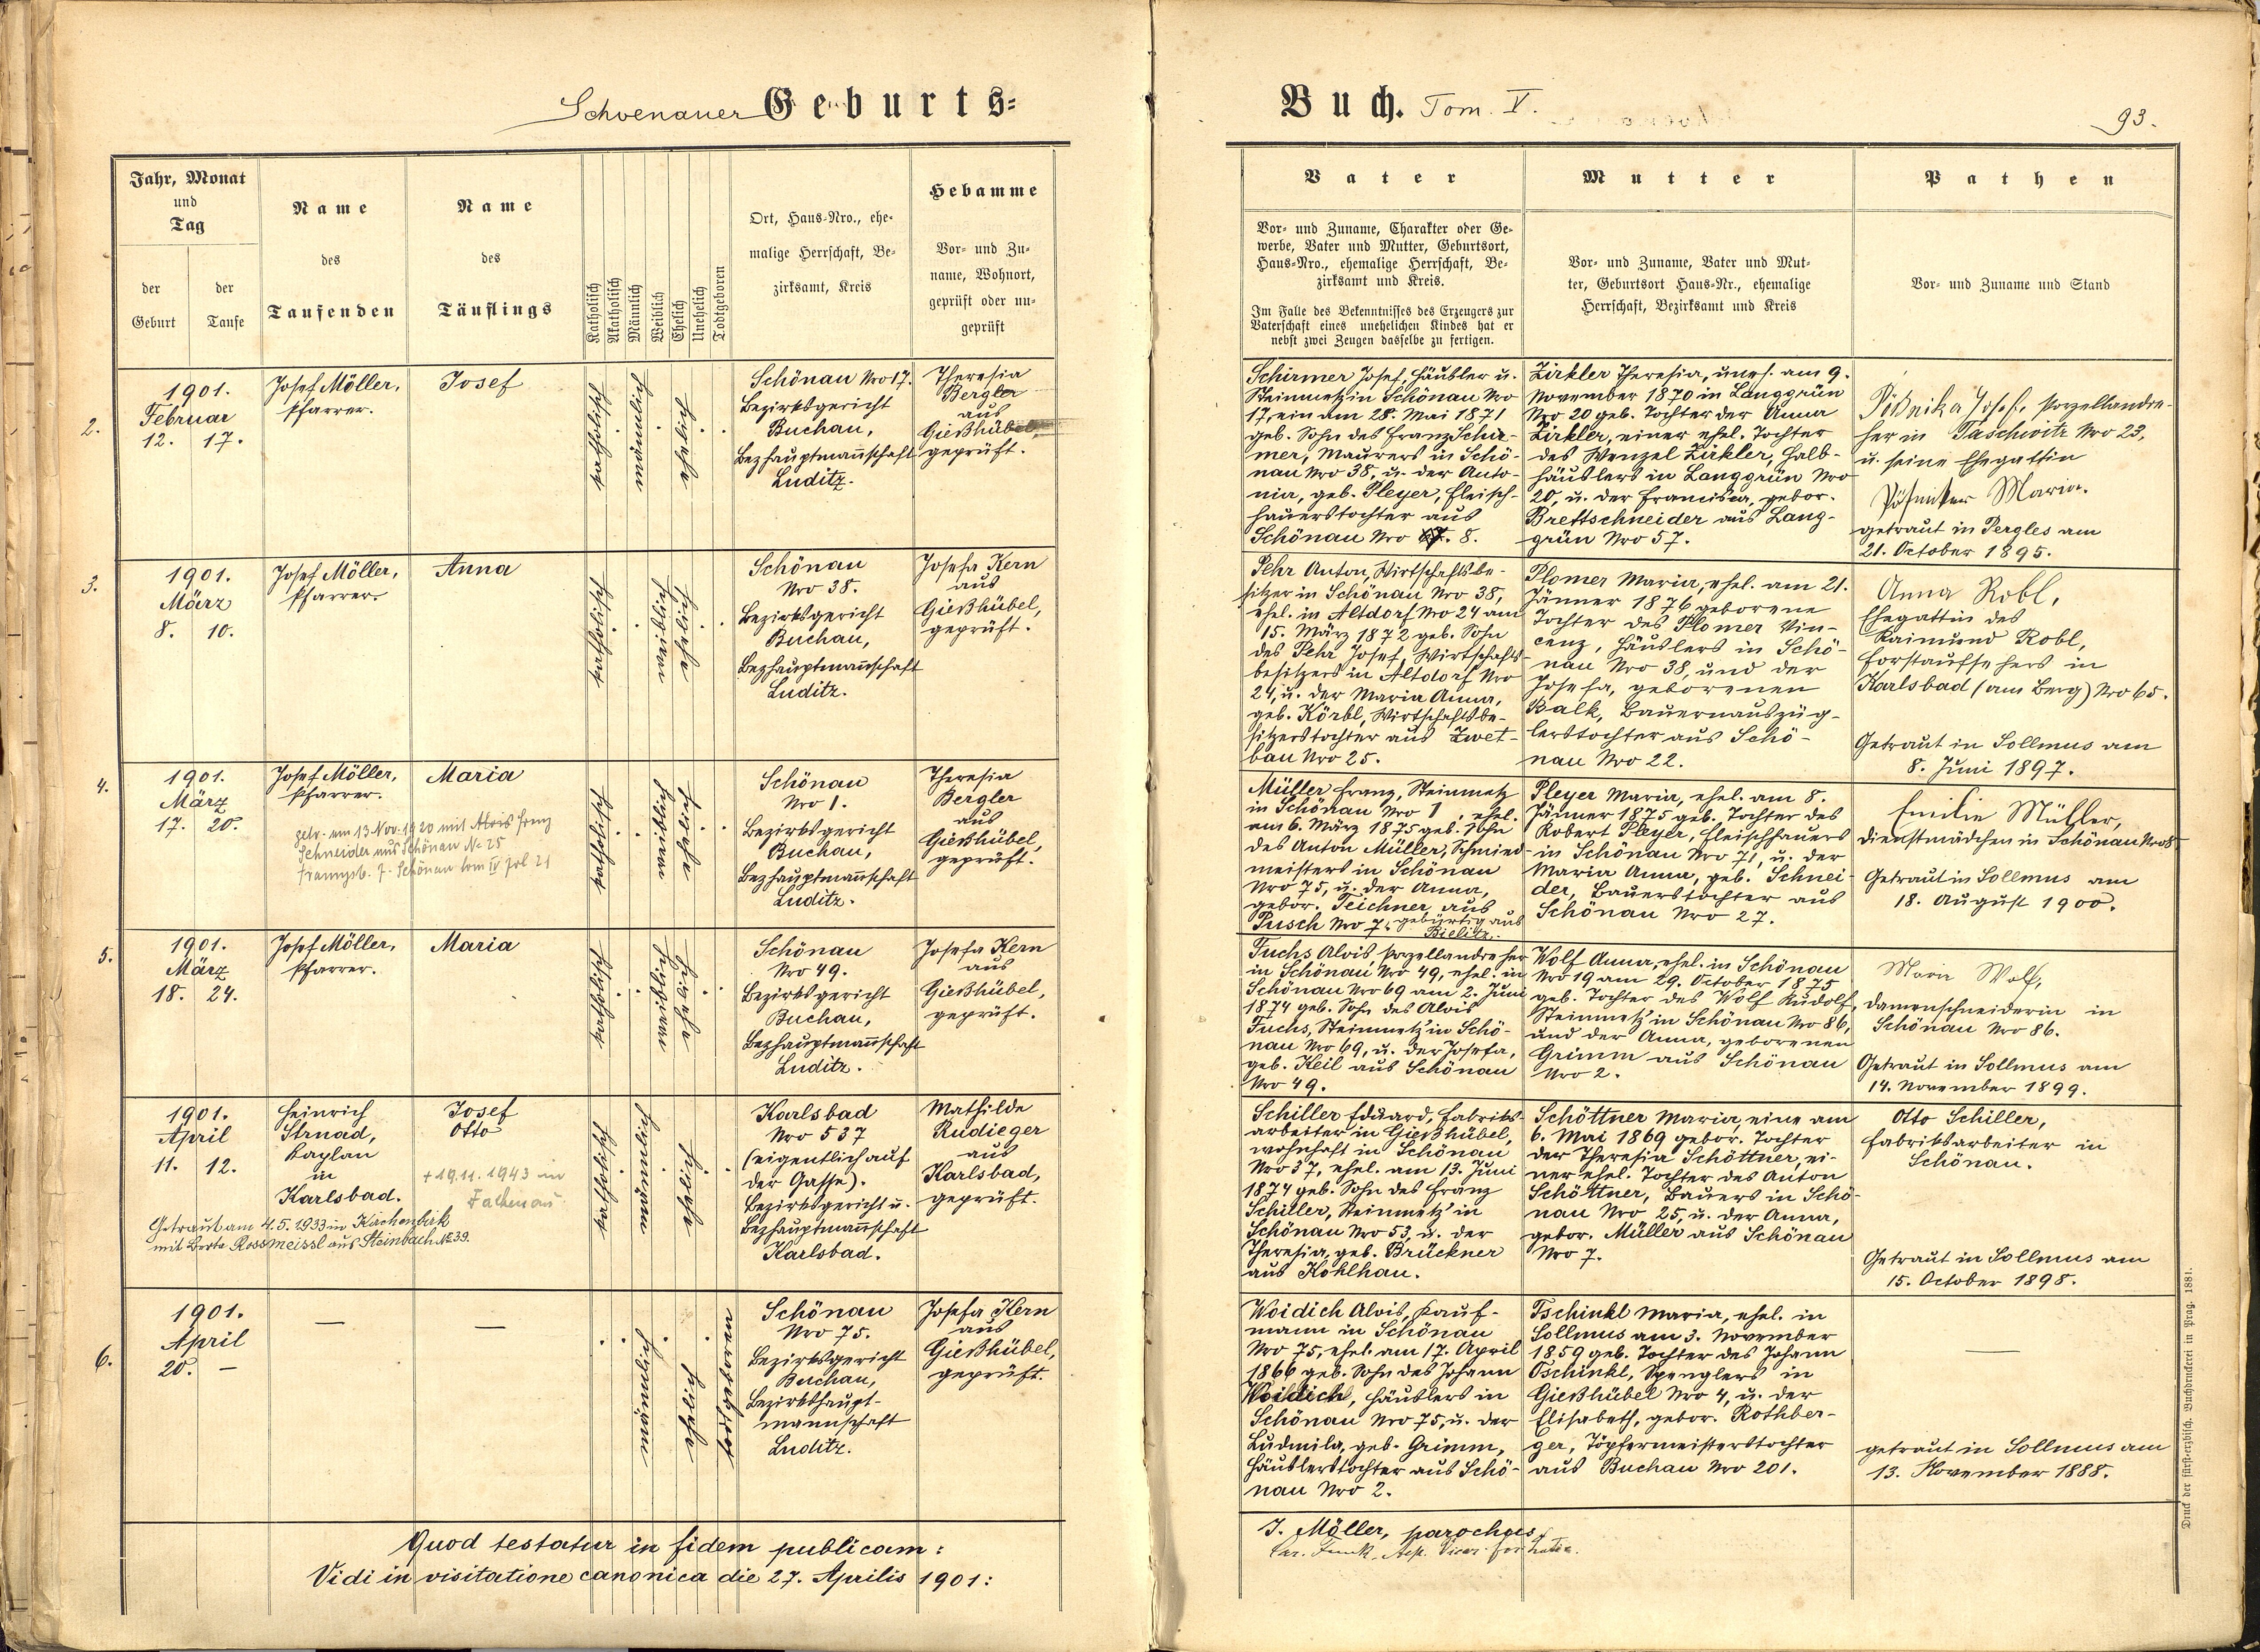 Schoenauer Geburts=
Buch. Tom. V.
93.
Jahr, Monat
und
Tag
der
Geburt
der
Taufe
Name
des
Taufenden
Name
des
Täuflings
Katholisch
Akatholisch
Männlich
Weiblich
Ehelich
Unehelich
Todtgeboren
Ort, Haus-Nro., ehe-
malige Herrschaft, Be-
zirksamt, Kreis
Hebamme
Vor- und Zu-
name, Wohnort,
geprüft oder un-
geprüft
Vater
Vor- und Zuname, Charakter oder Ge-
werbe, Vater und Mutter, Geburtsort,
Haus-Nro., ehemalige Herrschaft, Be-
zirksamt und Kreis.
Im Falle des Bekenntnisses des Erzeugers zur
Vaterschaft eines unehelichen Kindes hat er
nebst zwei Zeugen dasselbe zu fertigen.
Mutter
Vor- und Zuname, Vater und Mut-
ter, Geburtsort Haus-Nr., ehemalige
Herrschaft, Bezirksamt und Kreis
Pathen
Vor- und Zuname und Stand
2.
1901.
Februar
12. 17.
Josef Möller,
Pfarrer.
Josef
katholisch
männlich
ehelich
Schönau Nro 17.
Bezirksgericht
Buchau,
Bezhauptmañschaft
Luditz.
Theresia
Bergler
aus
Gießhübel,
geprüft.
Schirmer Josef, Häusler u.
Steinmetz in Schönau Nro
17, ein am 28. Mai 1871
geb. Sohn des Franz Schir-
mer, Maurers in Schö-
nau Nro 38, u. der Anto-
nia, geb. Pleyer, Fleisch-
hauerstochter aus
Schönau Nro 8.
Zirkler Theresia, unehl. am 9.
November 1870 in Langgrün
Nro 20 geb. Tochter der Anna
Zirkler, einer ehel. Tochter
des Wenzel Zirkler, Halb-
häuslers in Langgrün Nro
20, u. der Francisca, gebor.
Brettschneider aus Lang-
grün Nro 57.
Pößniker Josef, Porzellandre-
her in Taschwitz Nro 23,
u. seine Ehegattin
Pößniker Maria.
getraut in Pergles am
21. October 1895.
3.
1901.
März
8. 10.
Josef Möller,
Pfarrer.
Anna
katholisch
weiblich
ehelich
Schönau
Nro 38.
Bezirksgericht
Buchau,
Bezhauptmañschaft
Luditz.
Josefa Kern
aus
Gießhübel,
geprüft.
Pehr Anton, Wirtschaftsbe-
sitzer in Schönau Nro 38,
ehel. in Altdorf Nro 24 am
15. März 1872 geb. Sohn
des Pehr Josef, Wirtschafts-
besitzers in Altdorf Nro
24, u. der Maria Anna,
geb. Körbl, Wirtschaftsbe-
sitzerstochter aus Zwet-
bau Nro 25.
Plomer Maria, ehel. am 21.
Jänner 1876 geborene
Tochter des Plomer Vin-
cenz, Häuslers in Schö-
nau Nro 38, und der
Josefa, geborenen
Balk, Bauernauszüg-
lerstochter aus Schö-
nau Nro 22.
Anna Robl,
Ehegattin des
Raimund Robl,
Forstaufsehers in
Karlsbad (am Berg) Nro 65.
Getraut in Sollmus am
8. Juni 1897.
4.
1901.
März
17. 20.
Josef Möller,
Pfarrer.
Maria
getr. am 13 Nov. 1920 mit Alois Franz
Schneider aus Schönau No 25
Trauungsb. f. Schönau tom IV fol 21
katholisch
weiblich
ehelich
Schönau
Nro 1.
Bezirksgericht
Buchau,
Bezhauptmañschaft
Luditz.
Theresia
Bergler
aus
Gießhübel,
geprüft.
Müller Franz, Steinmetz
in Schönau Nro 1, ehel.
am 6. März 1875 geb. Sohn
des Anton Müller, Schmied-
meisters in Schönau
Nro 75, u. der Anna,
gebor. Teichner aus
Pusch Nro 7, gebürtig aus
Bielitz.
Pleyer Maria, ehel. am 8.
Jänner 1875 geb. Tochter des
Robert Pleyer, Fleischhauers
in Schönau Nro 71, u. der
Maria Anna, geb. Schnei-
der, Bauerstochter aus
Schönau Nro 27.
Emilie Müller,
Dienstmädchen in Schönau Nro 8.
Getraut in Sollmus am
18. August 1900.
5.
1901.
März
18. 24.
Josef Möller,
Pfarrer.
Maria
katholisch
weiblich
ehelich
Schönau
Nro 49.
Bezirksgericht
Buchau,
Bezhauptmañschaft
Luditz.
Josefa Kern
aus
Gießhübel,
geprüft.
Fuchs Alois, Porzellandreher
in Schönau Nro 49, ehel. in
Schönau Nro 69 am 2. Juni
1874 geb. Sohn des Alois
Fuchs, Steinmetz in Schö-
nau Nro 69, u. der Josefa,
geb. Keil aus Schönau
Nro 49.
Wolf Anna, ehel. in Schönau
Nro 19 am 29. October 1875
geb. Tochter des Wolf Rudolf,
Steinmetz in Schönau Nro 86,
und der Anna, geborenen
Grimm aus Schönau
Nro 2.
Marie Wolf,
Damenschneiderin in
Schönau Nro 86.
Getraut in Sollmus am
14. November 1899.
1901.
April
11. 12.
Heinrich
Strnad,
Kaplan
in
Karlsbad.
Josef
Otto
+ 19.11.1943 in
Falkenau
Getraut am 4.5.1933 in Kirchenbirk
mit Berta Rossmeissl aus Steinbach No 39.
katholisch
männlich
ehelich
Karlsbad
Nro 537
(eigentlich auf
der Gasse).
Bezirksgericht u.
Bezhauptmañschaft
Karlsbad.
Mathilde
Rudieger
aus
Karlsbad,
geprüft.
Schiller Eduard, Fabriks-
arbeiter in Gießhübel,
wohnhaft in Schönau
Nro 37, ehel. am 13. Juni
1874 geb. Sohn des Franz
Schiller, Steinmetz in
Schönau Nro 53, u. der
Theresia, geb. Brückner
aus Kohlhau.
Schöttner Maria, eine am
6. Mai 1869 gebor. Tochter
der Theresia Schöttner, ei-
ner ehel. Tochter des Anton
Schöttner, Bauers in Schö-
nau Nro 25, u. der Anna,
gebor. Müller aus Schönau
Nro 7.
Otto Schiller,
Fabriksarbeiter in
Schönau.
Getraut in Sollmus am
15. October 1898.
6.
1901.
April
20. —
—
—
männlich
ehelich
todtgeboren
Schönau
Nro 75.
Bezirksgericht
Buchau,
Bezirkshaupt-
mannschaft
Luditz.
Josefa Kern
aus
Gießhübel,
geprüft.
Woidich Alois, Kauf-
mann in Schönau
Nro 75, ehel. am 17. April
1866 geb. Sohn des Johann
Woidich, Häuslers in
Schönau Nro 75, u. der
Ludmila, geb. Grimm,
Häuslerstochter aus Schö-
nau Nro 2.
Tschinkl Maria, ehel. in
Sollmus am 3. November
1859 geb. Tochter des Johann
Tschinkl, Spenglers in
Gießhübel Nro 4, u. der
Elisabeth, gebor. Rothber-
ger, Töpfermeisterstochter
aus Buchau Nro 201.
—
getraut in Sollmus am
13. November 1888.
Quod testatur in fidem publicam:
J. Möller, parochus.
Vidi in visitatione canonica die 27. Aprilis 1901:
Druck der fürsterzbisch. Buchdruckerei in Prag. 1881.